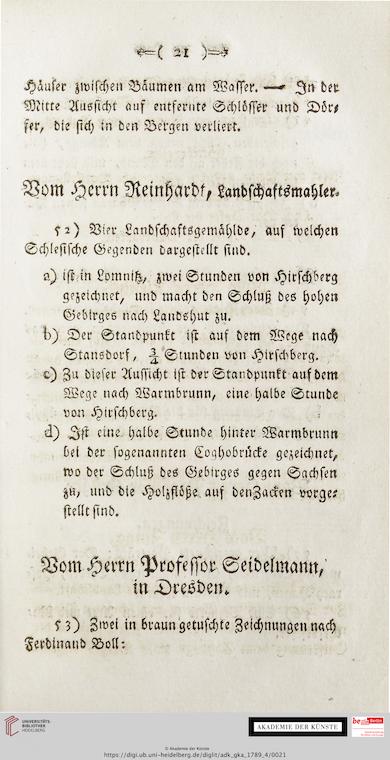 ( 21 )
Häuser zwischen Bäumen am Wasser. — In der
Mitte Aussicht auf entfernte Schlösser und Dör-
fer, die sich in den Bergen verliert.
Vom Herrn Reinhardt, Landschaftsmahler.
52) Vier Landschaftsgemählde, auf welchen
Schlesische Gegenden dargestellt sind.
a) ist in Lomnitz, zwei Stunden von Hirschberg
gezeichnet, und macht den Schluß des hohen
Gebirges nach Landshut zu.
b) Der Standpunkt ist auf dem Wege nach
Stansdorf, 3/4 Stunden von Hirschberg.
c) Zu dieser Aussicht ist der Standpunkt auf dem
Wege nach Warmbrunn, eine halbe Stunde
von Hirschberg.
d) Ist eine halbe Stunde hinter Warmbrunn
bei der sogenannten Coghobrücke gezeichnet,
wo der Schluß des Gebirges gegen Sachsen
zu, und die Holzflöße auf denZacken vorge-
stellt sind.
Vom Herrn Professor Seidelmann,
in Dresden.
53) Zwei in braun getuschte Zeichnungen nach
Ferdinand Boll:
UNIVERSITÄTS-
BIBLIOTHEK
HEIDELBERG
AKADEMIE DER KÜNSTE
be Berlin
© Akademie der Künste
https://digi.ub.uni-heidelberg.de/diglit/adk_gka_1789_4/0021